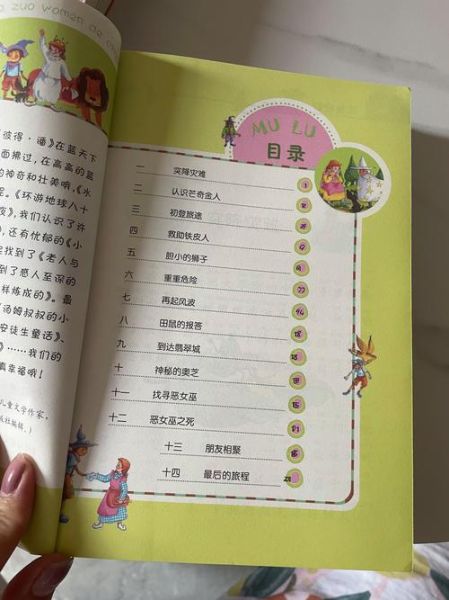 zuo women de
彼得·潘》在蓝天下
面拂过,在高高的蓝
的神奇和壮美哦,《水
《环游地球八十
我们认识了许
还有忧郁的《小
找到了《老人与
到了感人至深的
样炼成的》。最
汤姆叔叔的小
安徒生童话》、
》……我们的
真幸福哦!
儿童文学作家,
MU LU
目录
一 突降灾难 1
二 认识芒奇金人
三 初登旅途
四 救助铁皮人
五 胆小的狮子
六 重重危险
七 再起风波
八 田鼠的报答
九 到达翡翠城
十 神秘的奥芝
十一 找寻恶女巫
十二 恶女巫之死
十三 朋友相聚
十四 最后的旅程